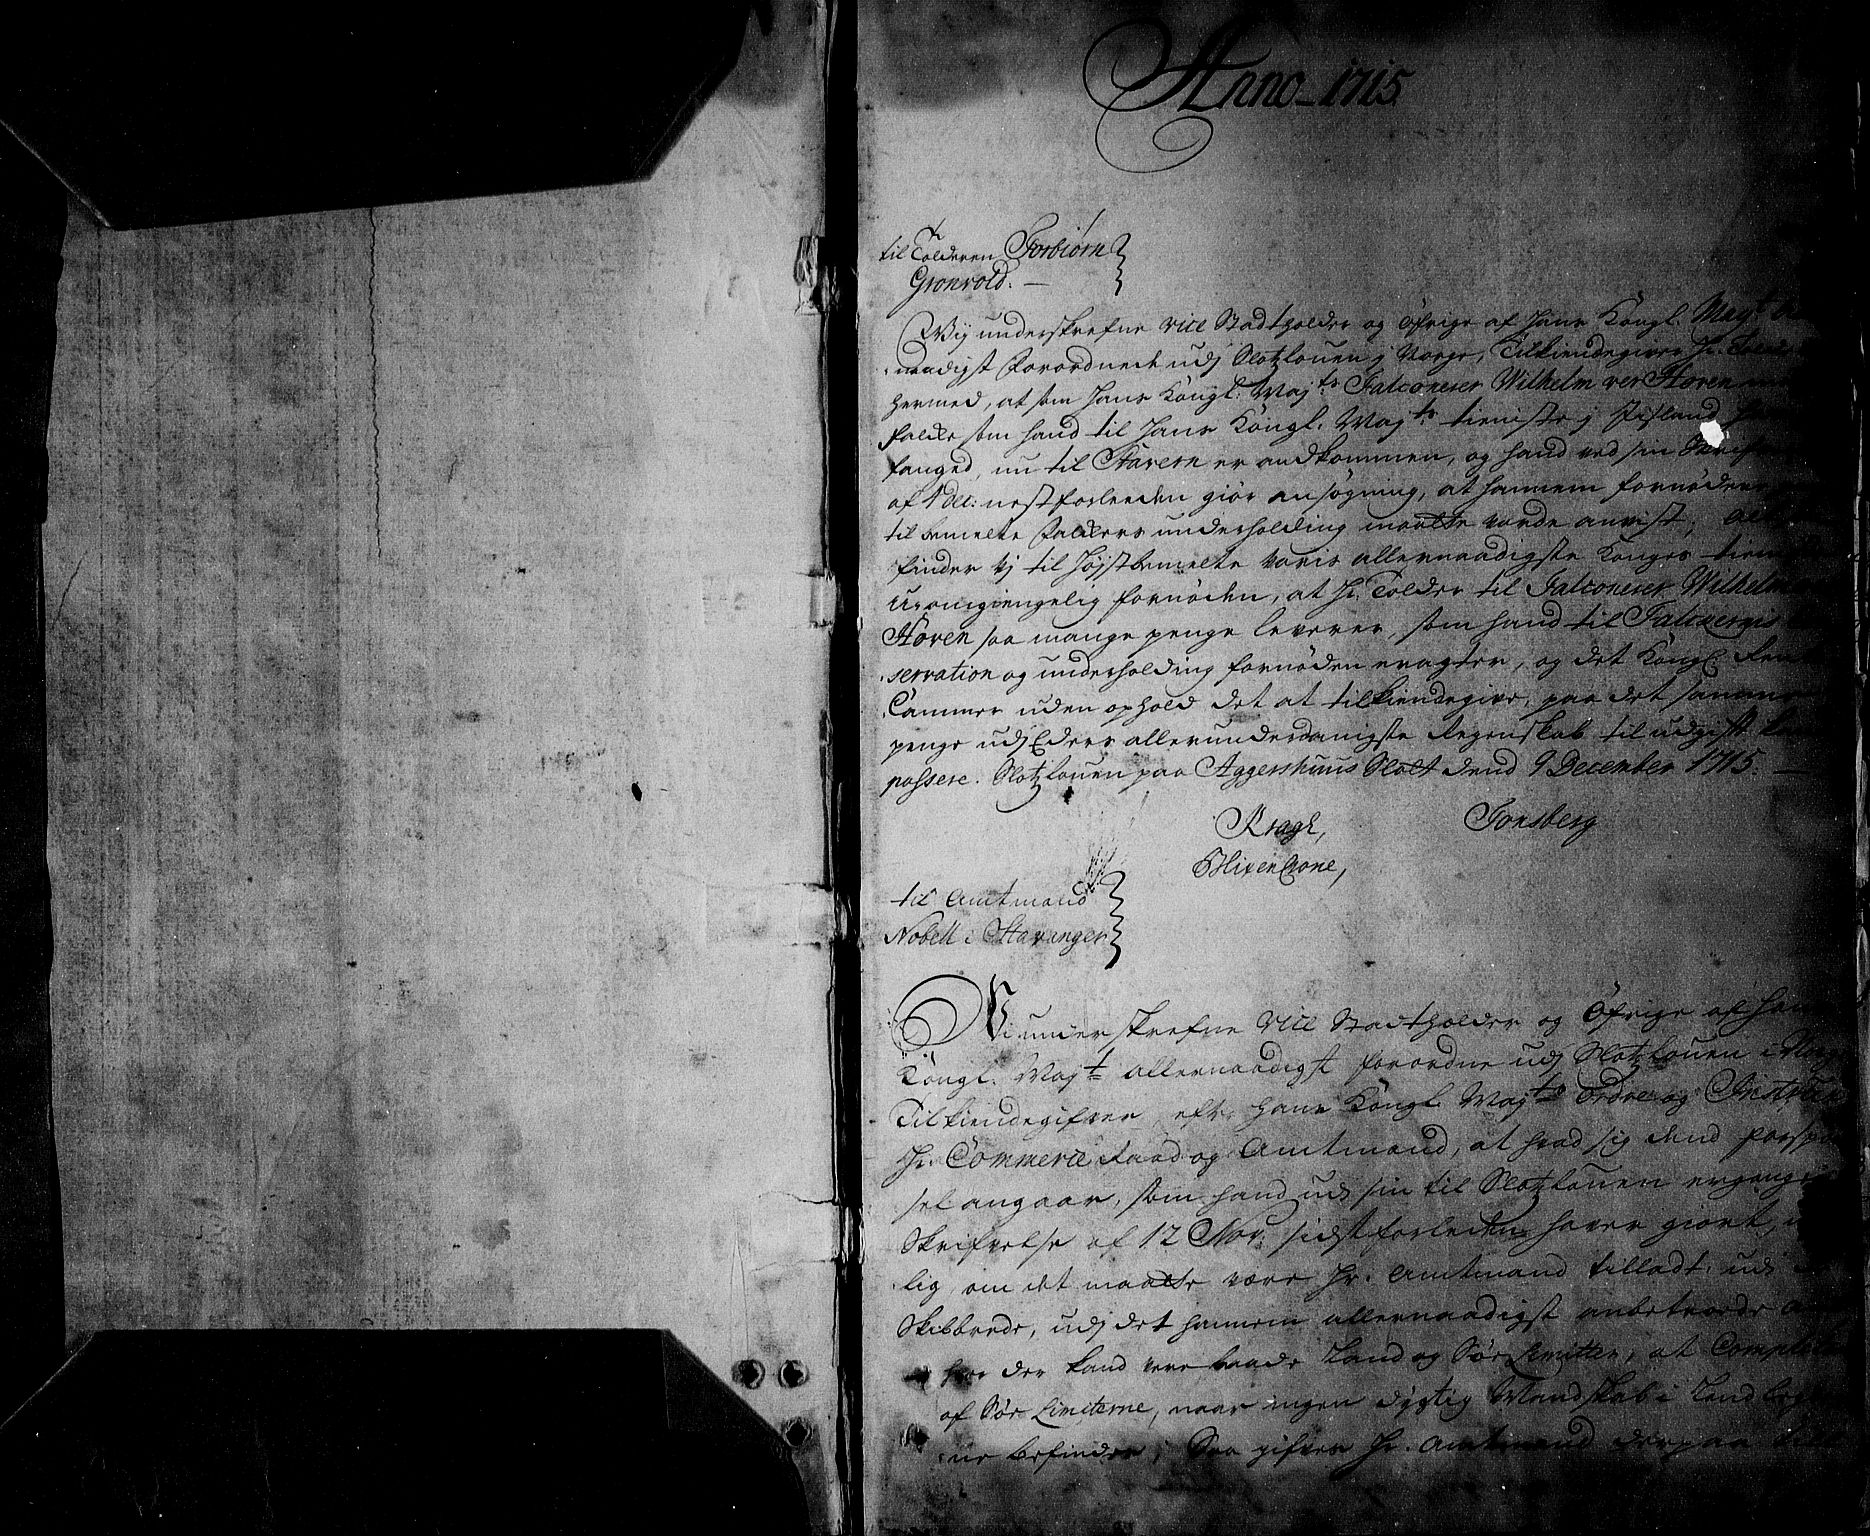 Anno 1715
til Tolderen Torbiørn
Gronvold. —
Wij underskrefne vice Stadtholder og Øfrige af Hans Kongl. Mayt
naadigst Forordnede udj Slotzlouen j Norge, Tilkiendegiver Hr. Told
hermed, at som Hans Kongl: Mayts Falconerer Wilhelm ver Hoven
falcke som hand til Hans Kongl. Mayts tieniste j Iisland
fanged, nu til Stavern er andkommen, og hand ved sin Skrif
af 1 dec: nestforleeden giør ansøgning, at hannem fornøden
til bemelte Falckers underholding maatte vorde anvist,
finder vj til Højstbemelte voris allernaadigste Konges tien
uromgiengelig fornøden, at Hr. Tolder til Falconerer Wilhelm
Hoven saa mange penge leverer, som hand til Falckernis
servation og underholding fornøden eragter, og det Kongl. Rente
Cammer uden ophold det at tilkiendegive, paa det samme
penge udj Eders allerunderdanigste Regenskab til udgift
passere. Slotzlouen paa Aggershuus Slott dend 9 December 1715. —
Kragh, Tonsberg
Blixencrone,
til Amtmand
Nobell i Stavanger
Wi underskrefne vice Stadtholder og Øfrige af Hans
Kongl. Mayt allernaadigst forordne udj Slotzlouen i Norge
Tilkiendegifver efter Hans Kongl. Mayts Ordre og Instru
Hr. Commerce Raad og Amtmand, at hvad sig dend forspør
sel angaar, som hand udj sin til Slotzlouen ergangne
Skrifvelse af 12 Nov. sidstforleden haver giort,
lig om det maatte være Hr. Amtmand tilladt udj
Skibbrede, udj det hannem allernaadigst anbetroede
hvor der kand vere baade Land og Søe Limitter, at Complet
af Søe Limiterne, naar ingen dygtig Mandskab i Land
ne befindes; Saa gifves Hr. Amtmand derpaa